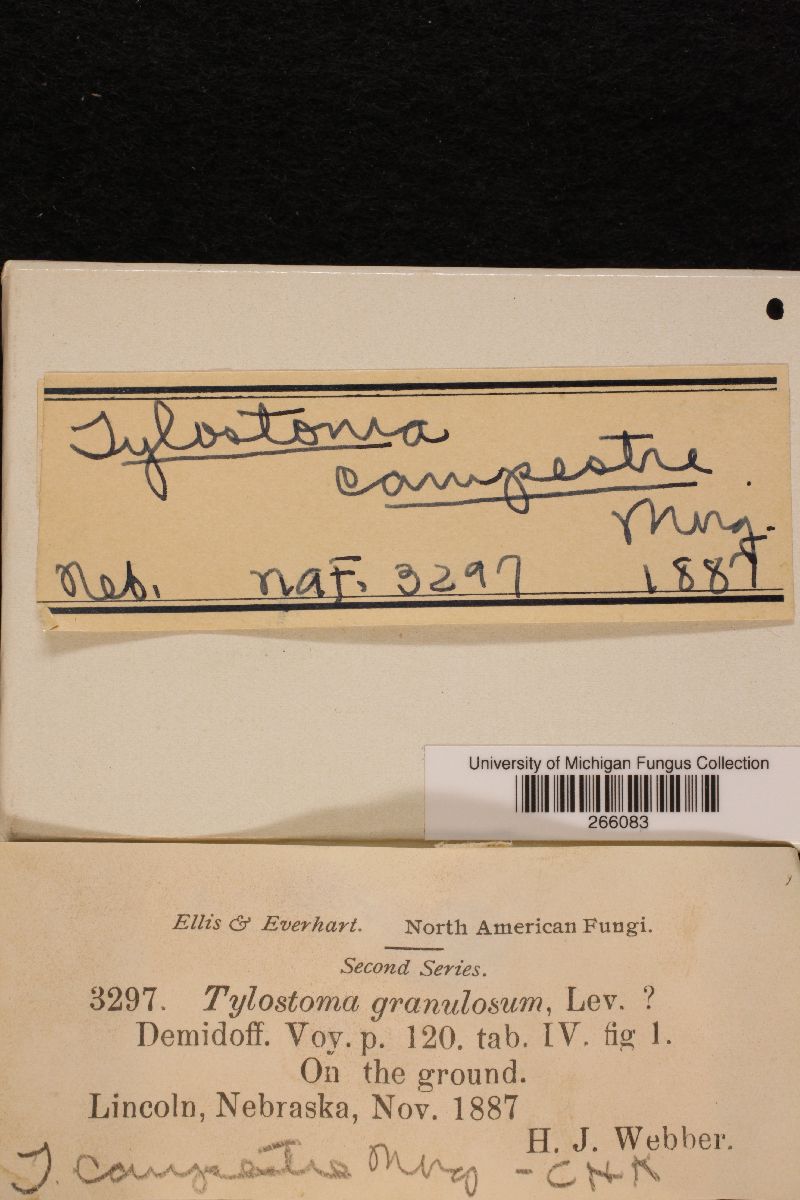 Tylostoma
campestre
Morg.
Neb. NAF. 3297 1887
University of Michigan Fungus Collection
266083
Ellis & Everhart. North American Fungi.
Second Series.
3297. Tylostoma granulosum, Lev. ?
Demidoff. Voy. p. 120. tab. IV. fig 1.
On the ground.
Lincoln, Nebraska, Nov. 1887
H. J. Webber.
T. campestre Morg - CHK